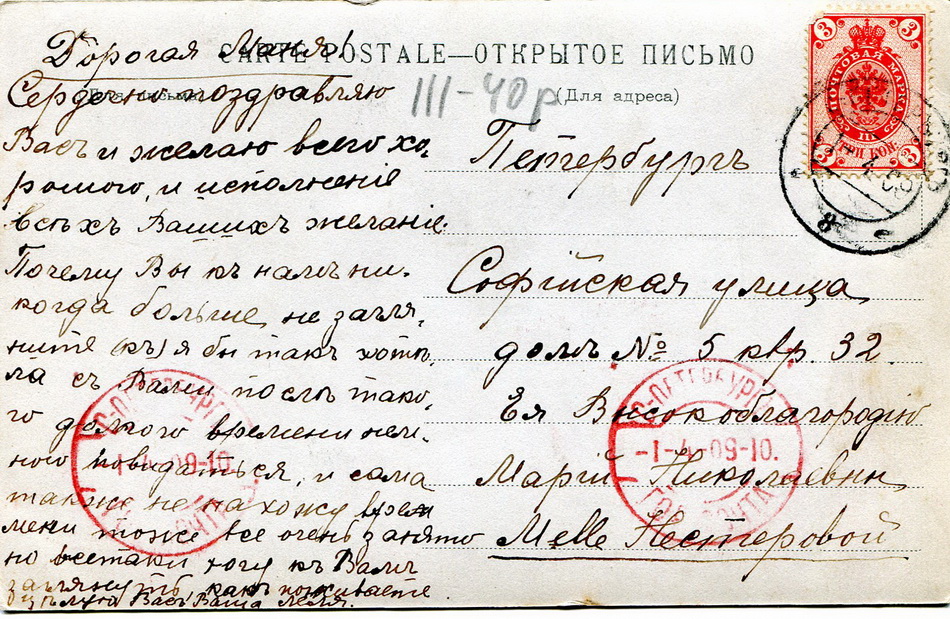 CARTE POSTALE—ОТКРЫТОЕ ПИСЬМО
(Для адреса)
III-40р
Дорогая Маня!
Сердечно поздравляю
Васъ и желаю всего хо-
рошаго, и исполненiе
всѣхъ Вашихъ желанiе.
Почему Вы къ намъ ни-
когда больше не загля-
ните я бы такъ хотѣ-
ла съ Вами послѣ тако-
го долгого времени нем-
ного повидаться, и сама
также не нахожу врем
мени тоже все очень занято
но всетаки хочу къ Вамъ
заглянуть какъ поживаете
цѣлую Васъ Ваша Леля.
Петербургъ
Софiйская улица
домъ № 5 квр. 32.
Ея Высокоблагородiю
Марiй Николаевн
Melle Нестеровой
3 3
ПОЧТОВАЯ МАРКА
ТРИ КОП.
3 3
8
С-ПЕТЕРБУРГЪ
-1-4-09-10.
ГОР. ПОЧТА
С-ПЕТЕРБУРГЪ
-1-4-09-10.
ГОР. ПОЧТА